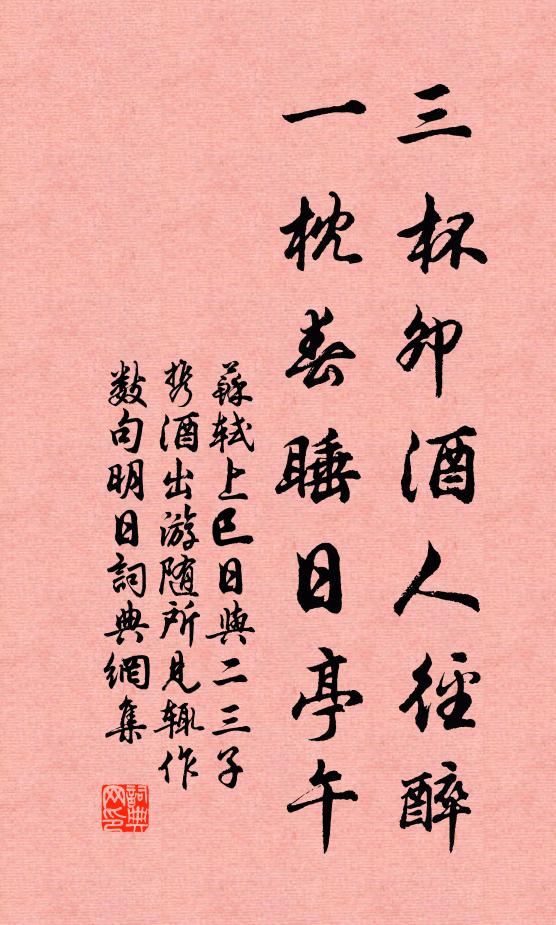 三杯卯酒人径醉
一枕春睡日亭午
蘇軾上巳日與二三子
携酒出游随所見辄作
数句明日詞典網集
詞典
网印